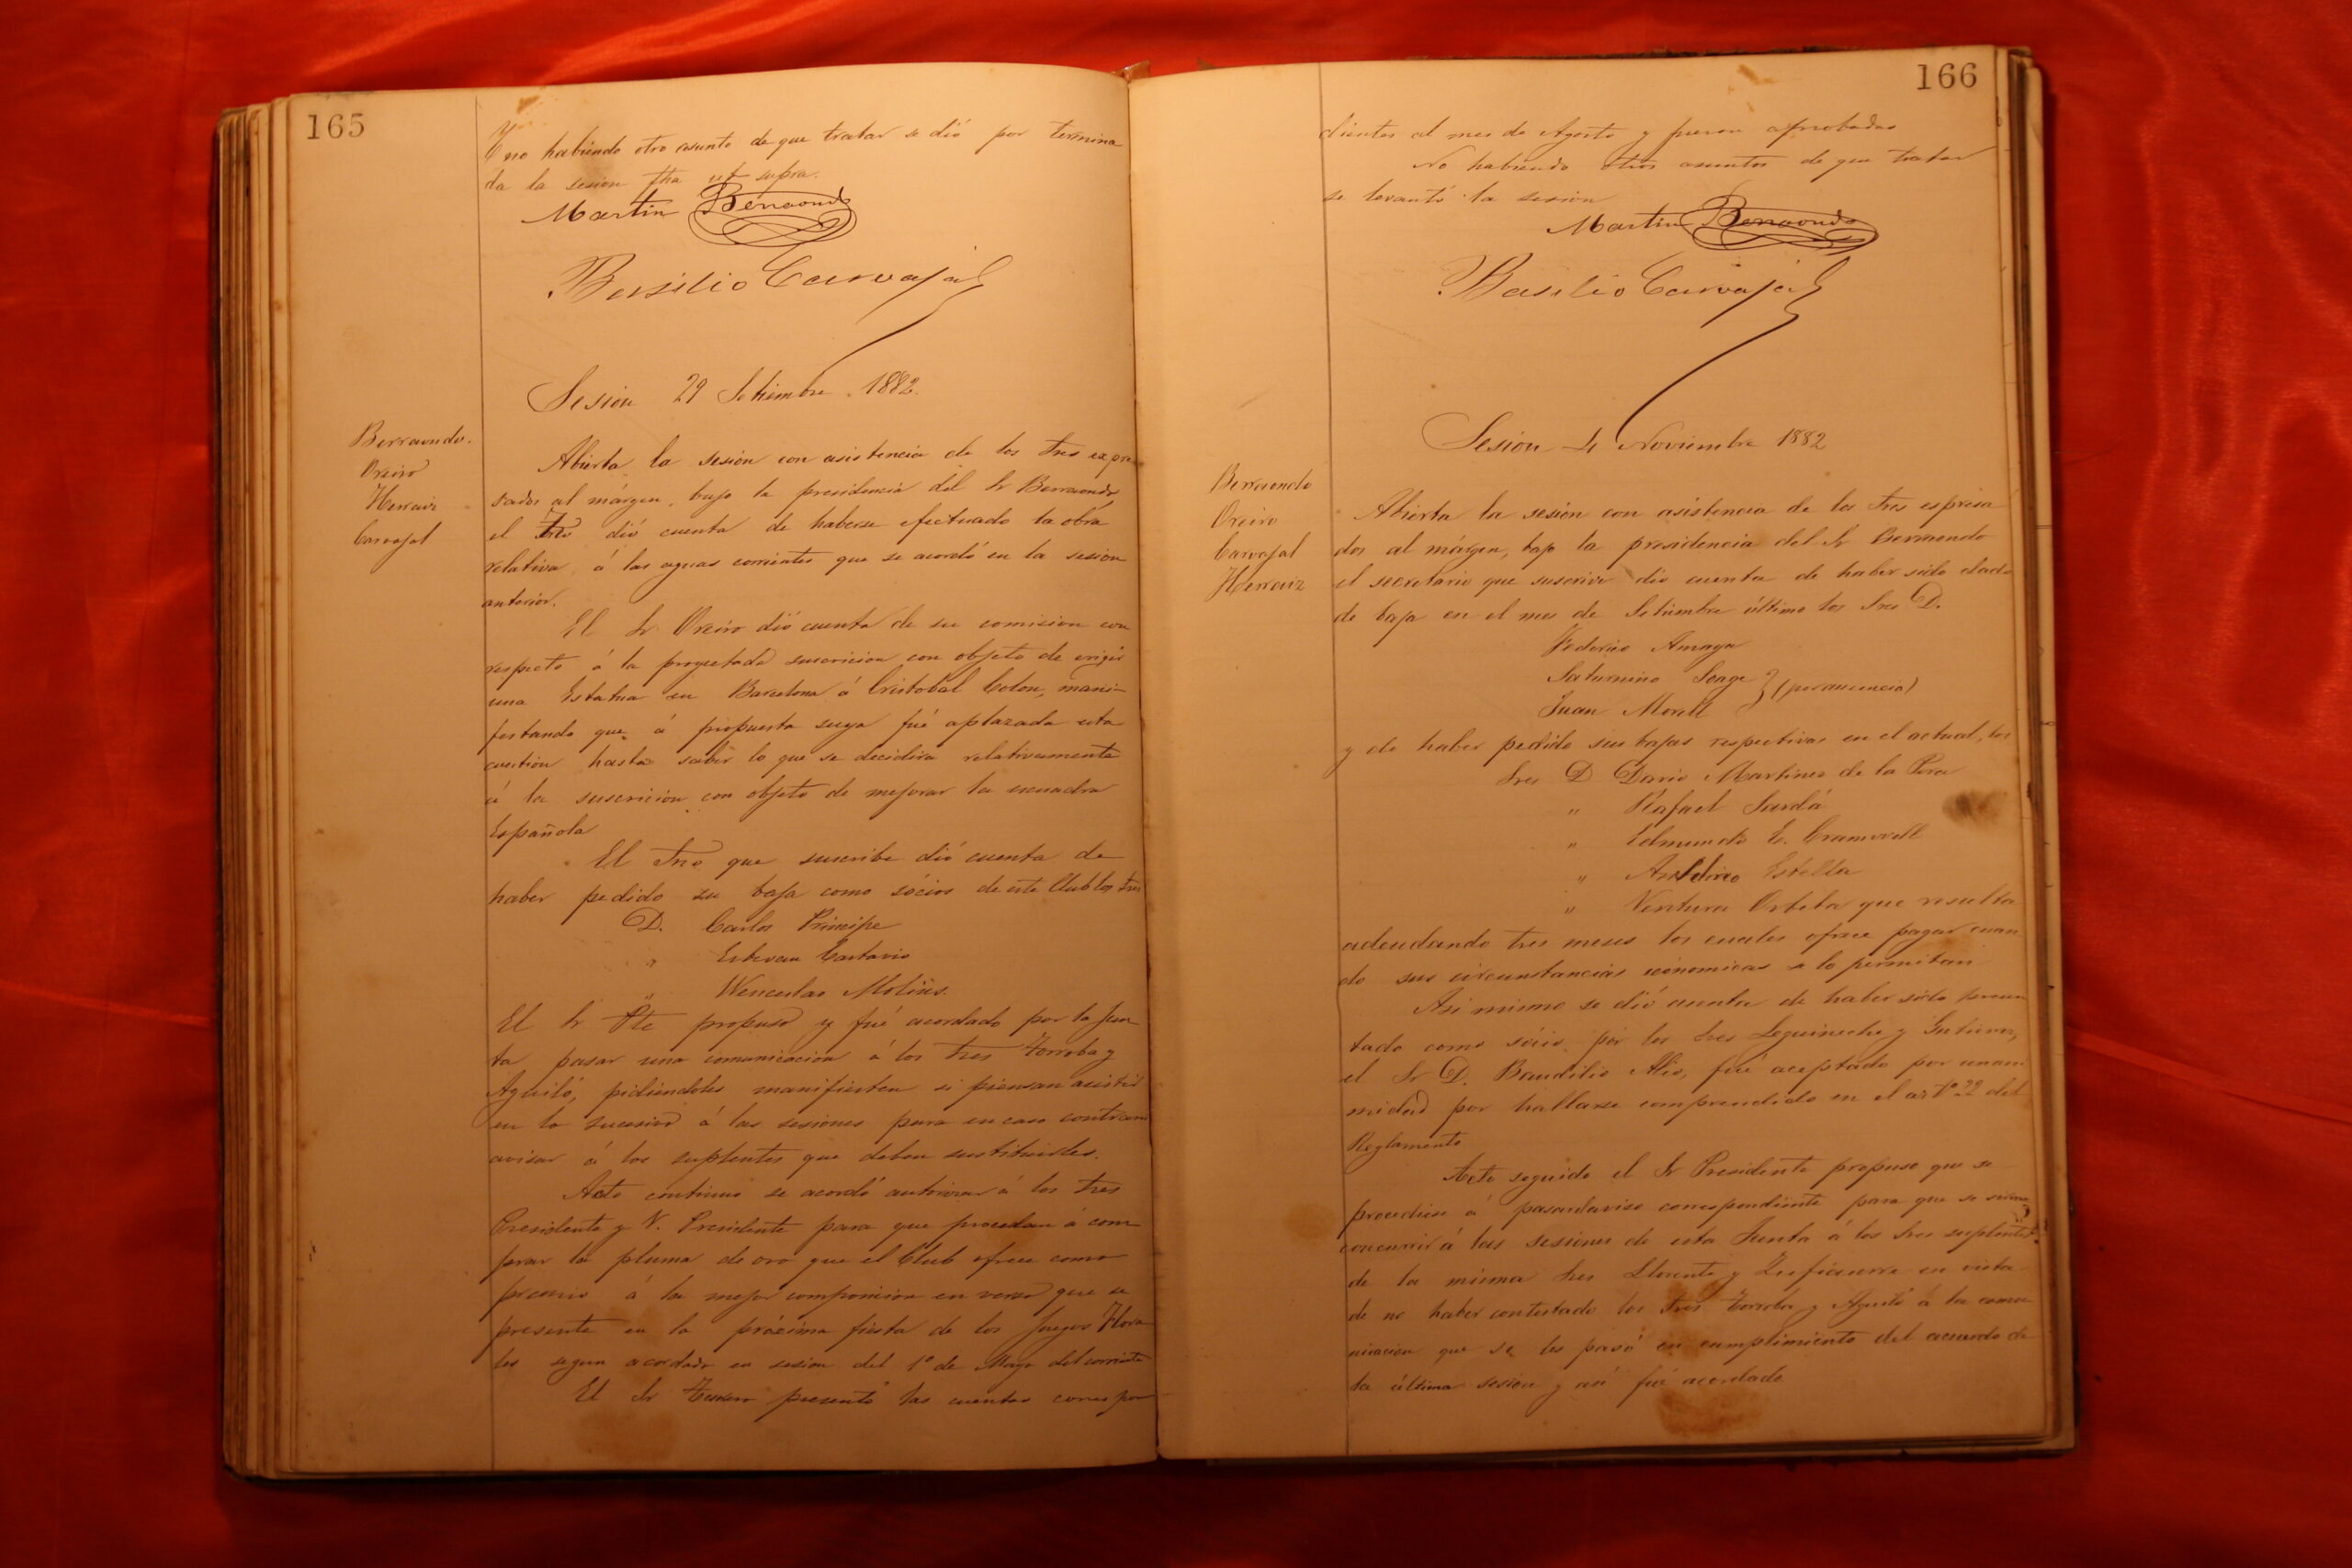 165
Y no habiendo otro asunto de que tratar se dió por termina
da la sesion fha ut supra.
Martin Berraondo
Basilio Carvajal
Sesion 29 Setiembre 1882.
Berraondo.
Oreiro
Herraiz
Carvajal
Abierta la sesión con asistencia de los Sres expre
sados al márgen, bajo la presidencia del Sr Berraondo
el dió cuenta de haberse efectuado la obra
relativa á las aguas corrientes que se acordó en la sesion
anterior.
El Sr Oreiro dió cuenta de su comision con
respecto á la proyectada suscricion con objeto de erigir
una Estatua en Barcelona á Cristobal Colon, mani-
festando que á propuesta suya fué aplazada esta
cuestion hasta saber lo que se decidira relativamente
á la suscricion con objeto de mejorar la escuadra
Española
El Srio que suscribe dió cuenta de
haber pedido su baja como sócios de este Club los Sres
D. Carlos Principe
" Estevan
" Wenceslao Molins.
El Sr Pte propuso y fué acordado por la Jun
ta pasar una comunicacion á los Sres Torroba y
Aguiló, pidiendoles manifiesten si piensan asistir
en lo sucesivo á las sesiones para en caso contrario
avisar á los suplentes que deben sustituirles.
Acto continuo se acordó autorizar á los Sres
Presidente y V. Presidente para que procedan á com
prar la pluma de oro que el Club ofrece como
premio á la mejor composicion en verso que se
presente en la próxima fiesta de los Juegos Flora
les segun acordado en sesion del 1º de Mayo del corriente
El Sr Tesorero presentó las cuentas correspon
166
dientes al mes de Agosto y fueron aprobadas
No habiendo otros asuntos de que tratar
se levantó la sesion
Martin Berraondo
Basilio Carvajal
Sesion 4 Noviembre 1882
Berraondo
Oreiro
Carvajal
Herraiz
Abierta la sesión con asistencia de los Sres espresa
dos al márgen, bajo la presidencia del Sr Berraondo
el secretario que suscrive dio cuenta de haber sido dado
de baja en el mes de Setiembre último los Sres D.
Federico Amaya
Saturnino
Juan Morell } (por ausencia)
y de haber pedido sus bajas respectivas en el actual, los
Sres D Dario Martinez de la
" Rafael Sardá
" Edmundo E. Cramwell
" Estella
" Ventura Orbeta que resulta
adeudando tres meses los cuales ofrece pagar cuan
do sus circunstancias economicas se lo permitan
Asi mismo se dió cuenta de haber sido presen
tado como sócio por los Sres Leguineche y Gutierrez,
el Sr D. Baudilio Alió, fué aceptado por unani
midad por hallarse comprendido en el artº 22 del
Reglamento
Acto seguido el Sr Presidente propuso que se
procediese á pasar el aviso correspondiente para que se sirvan
concurrir á las sesiones de esta Junta á los Sres suplentes
de la misma Sres Llorente y en vista
de no haber contestado los Sres Torroba y Aguiló á la comu
nicacion que se les pasó en cumplimiento del acuerdo de
la última sesion y así fué acordado